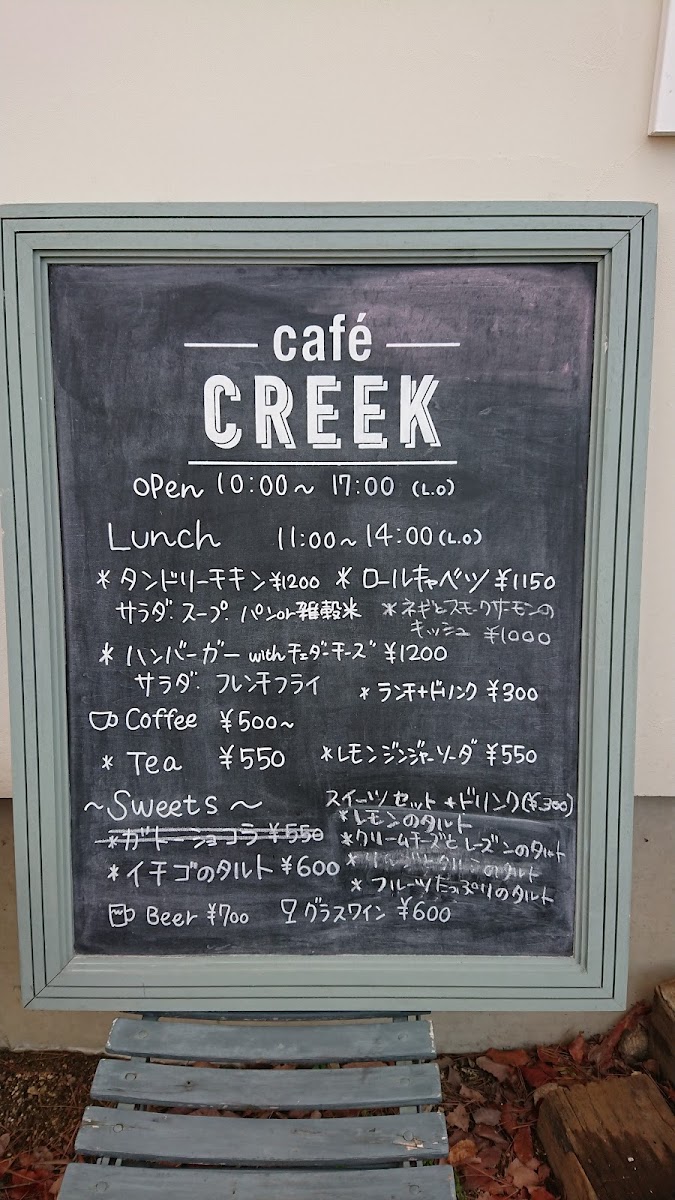 café
CREEK
open 10:00～17:00 (L.O)
Lunch 11:00～14:00(L.O)
＊タンドリーチキン ¥1200 ＊ロールキャベツ ¥1150
サラダ・スープ・パンor雑穀米
＊ネギとスモークサーモンの
キッシュ ¥1000
＊ハンバーガー withチェダーチーズ ¥1200
サラダ・フレンチフライ
＊ランチ+ドリンク ¥300
Coffee ¥500～
＊Tea ¥550 ＊レモンジンジャーソーダ ¥550
～Sweets～
＊ガトーショコラ ¥550
＊イチゴのタルト ¥600
スイーツセット+ドリンク(¥300)
＊レモンのタルト
＊クリームチーズとレーズンのタルト
＊のタルト
＊フルーツたっぷりのタルト
Beer ¥700 グラスワイン ¥600